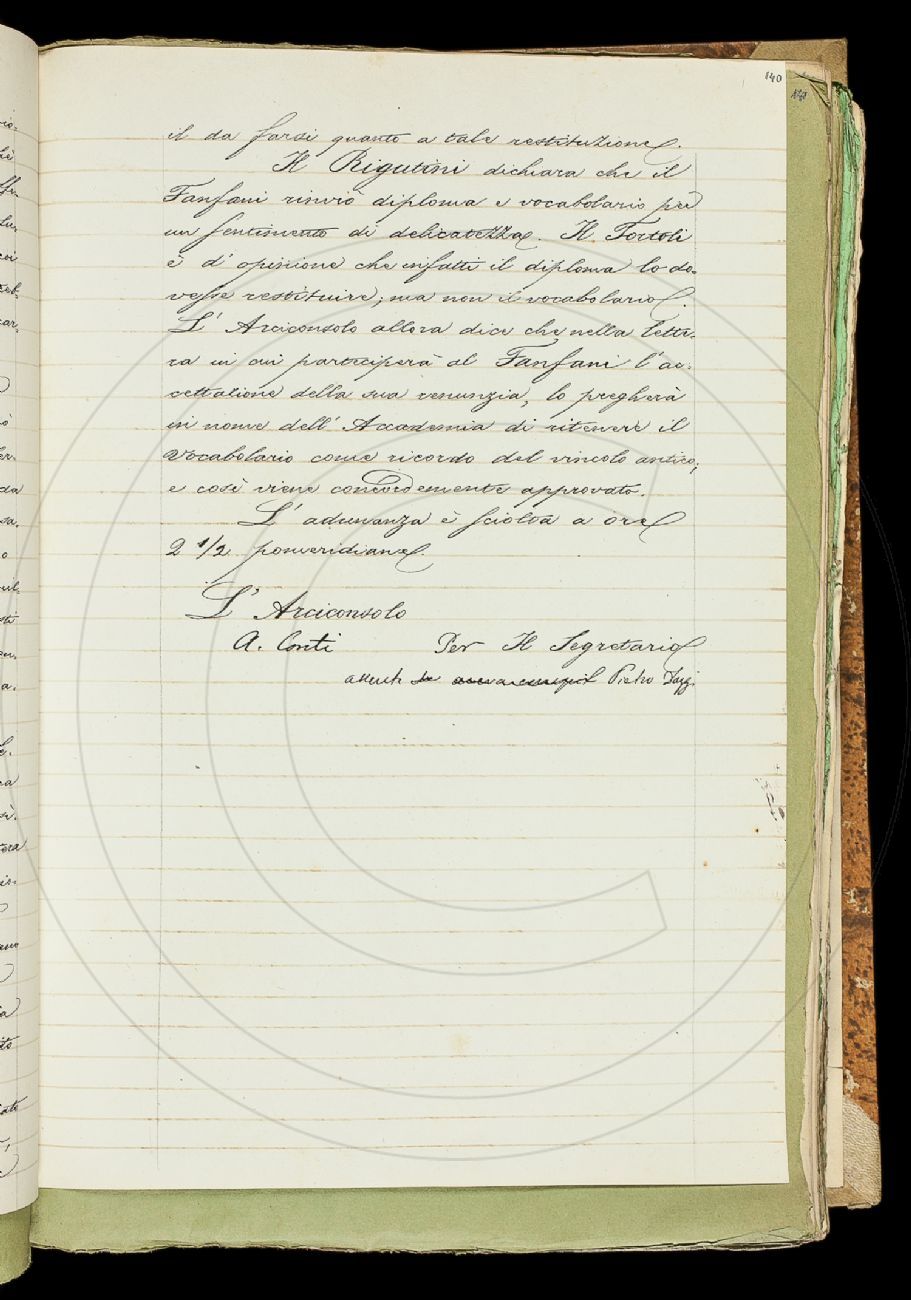 140
il da farsi quanto a tale restituzione.
Il Rigutini dichiara che il
Fanfani rinviò diploma e vocabolario per
un sentimento di delicatezza. Il Tortoli
è d'opinione che infatti il diploma lo do-
vesse restituire; ma non il vocabolario.
L'Arciconsolo allora dice che nella lette-
ra in cui parteciperà al Fanfani l'ac-
cettazione della sua renunzia, lo pregherà
in nome dell'Accademia di ritenere il
Vocabolario come ricordo del vincolo antico;
e così viene concordemente approvato.
L'adunanza è sciolta a ore
2 1/2 pomeridiane.
L'Arciconsolo
A. Conti Per Il Segretario
assente Pietro Dazzi